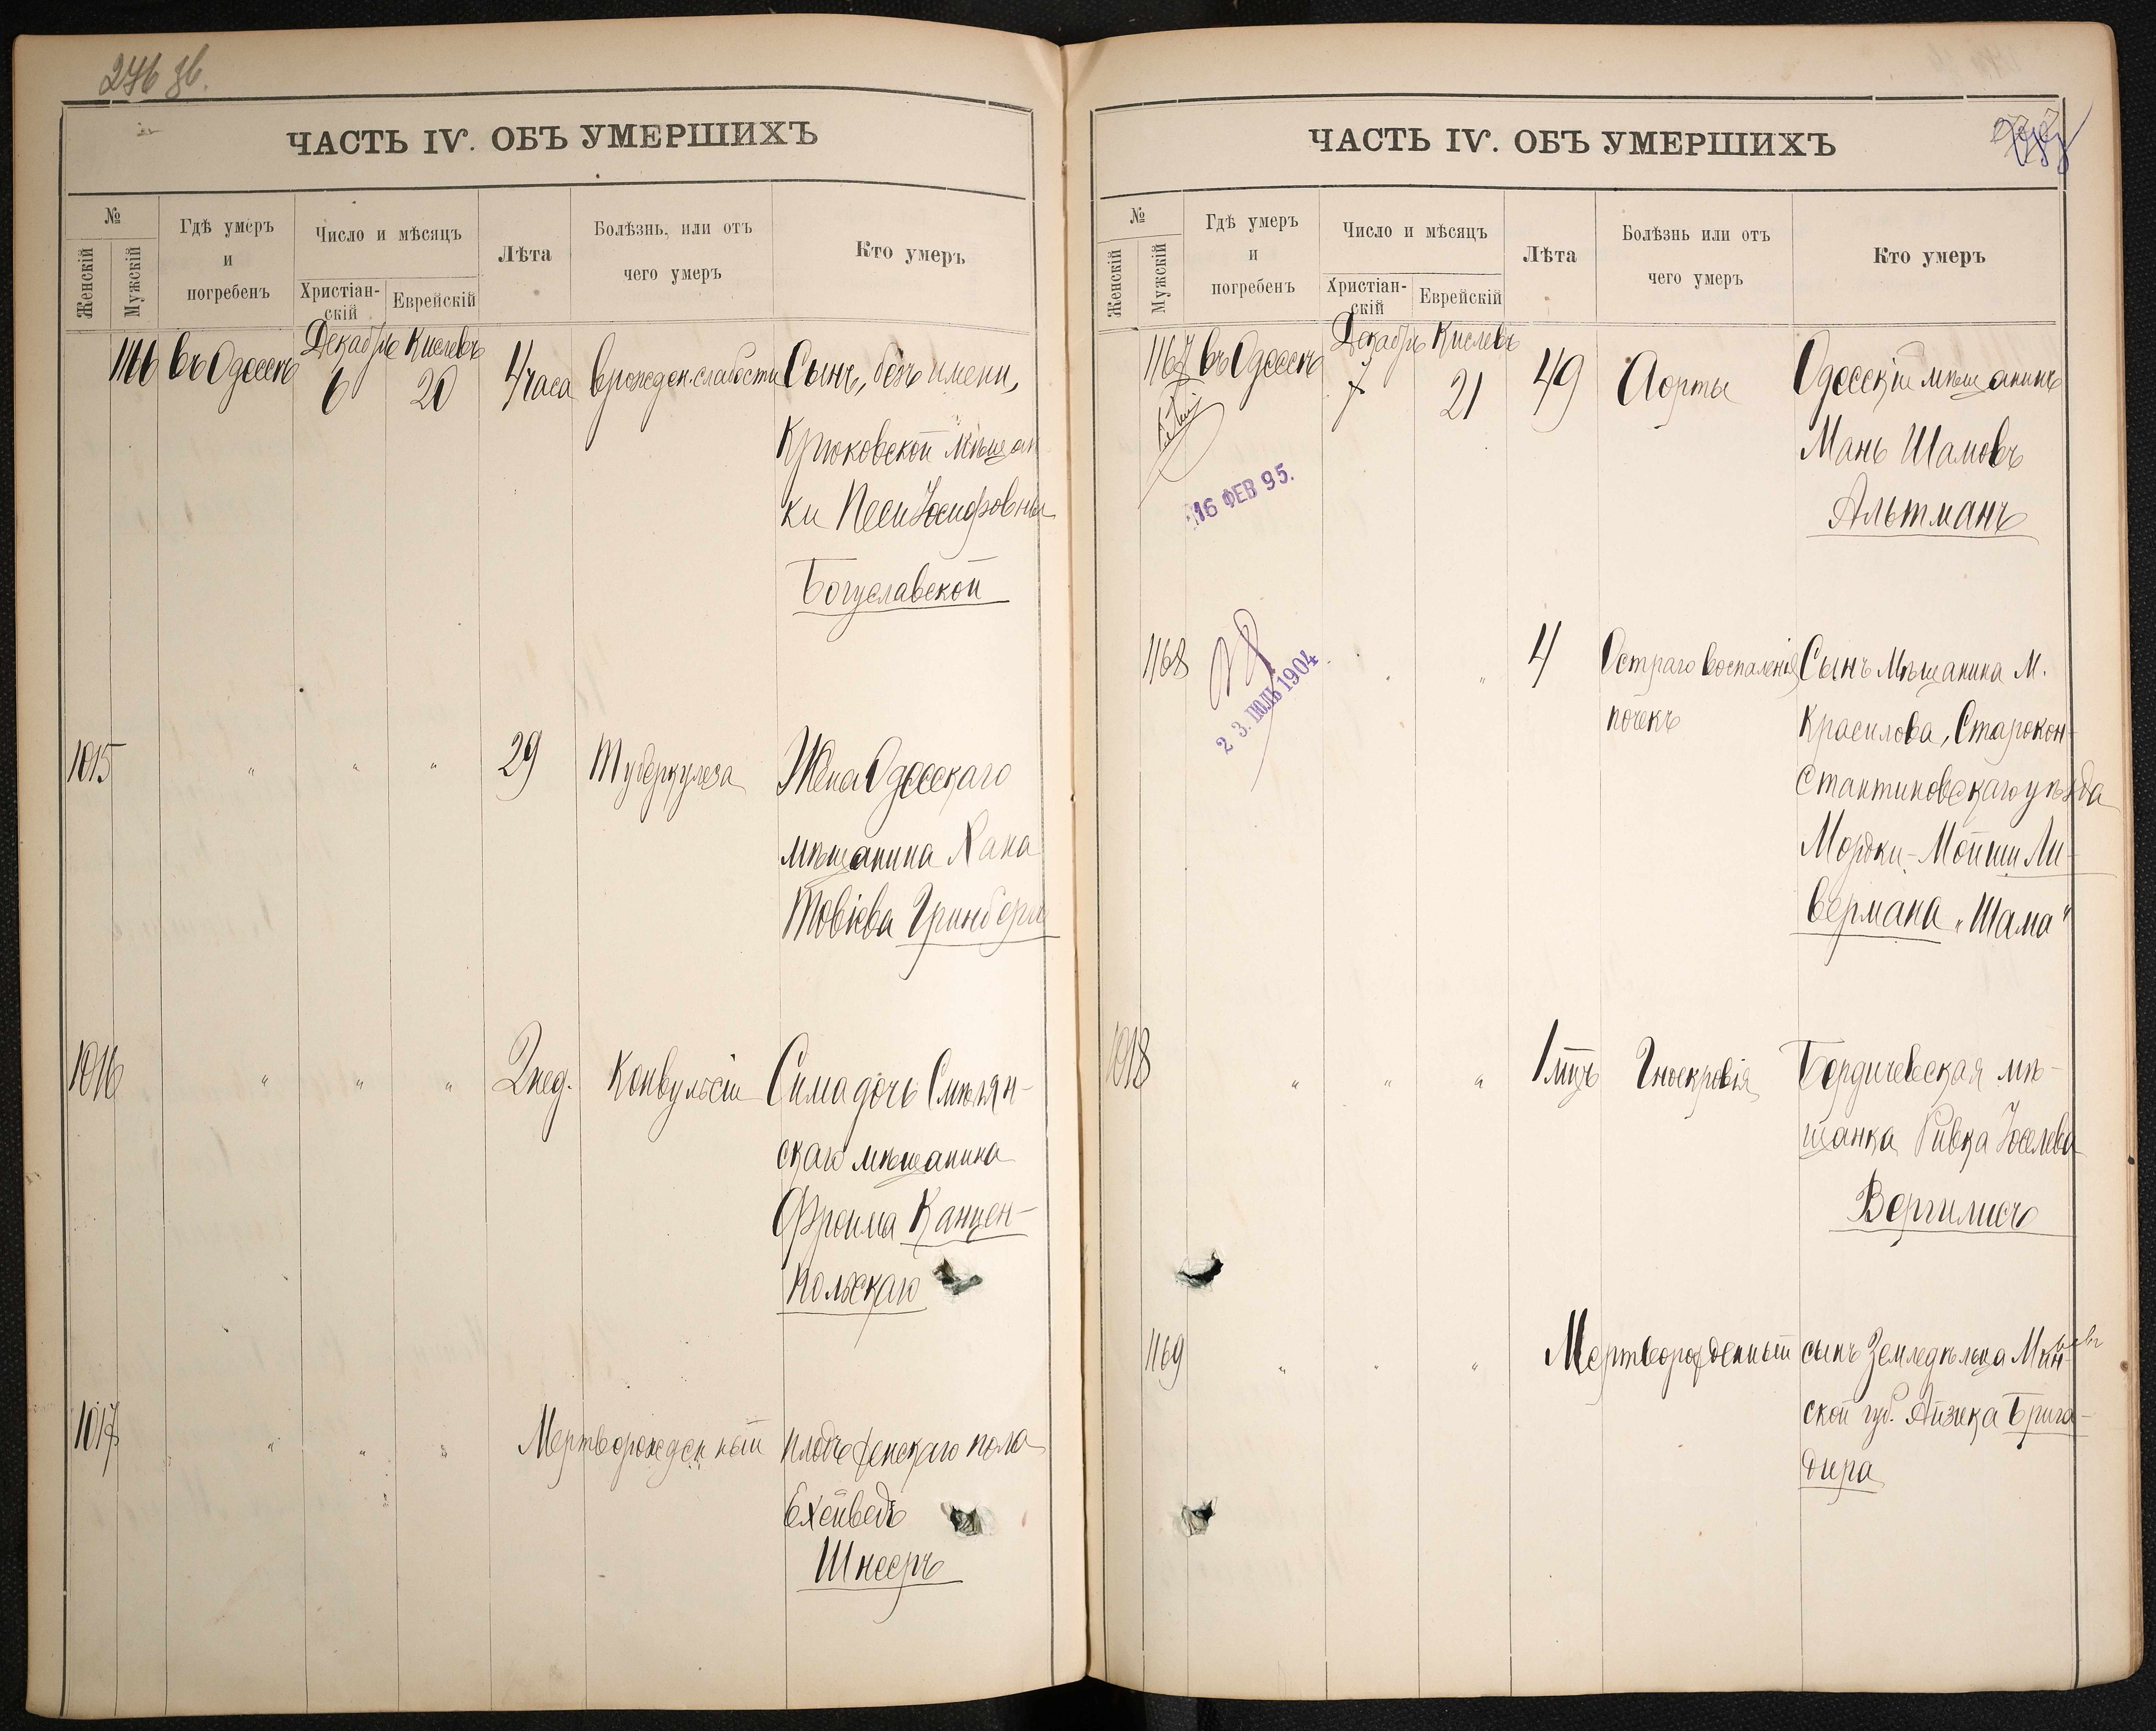 276 зв.
ЧАСТЬ IV. ОБЪ УМЕРШИХЪ
№
Женскій
Мужскій
Гдѣ умеръ
и
погребенъ
Число и мѣсяцъ
Христіан-
скій
Еврейскій
Лѣта
Болѣзнь, или отъ
чего умеръ
Кто умеръ
Декабрь Кислевъ
1166 въ Одессѣ 6 20 4 часа врожден. слабости Сынъ, безъ имени,
Крюковской мѣщан
ки Песи Іосифовны
Богуславской
1015 " " " 29 Туберкулеза Жена Одесскаго
мѣщанина Хана
Товіева Гринберга
1016 " " " 2 нед. Конвульсіи Сима дочь Смѣлян-
скаго мѣщанина
Фроима Канцен-
польскаго
1017 " " " Мертворожденный плодъ женскаго пола
Ехейведъ
Шнееръ
ЧАСТЬ IV. ОБЪ УМЕРШИХЪ
№
Женскій
Мужскій
Гдѣ умеръ
и
погребенъ
Число и мѣсяцъ
Христіан-
скій
Еврейскій
Лѣта
Болѣзнь или отъ
чего умеръ
Кто умеръ
Декабрь Кислевъ
1167 въ Одессѣ 7 21 49 Аорты Одесскій мѣщанинъ
Мань Шамовъ
Альтманъ
16 ФЕВ 95.
1168 " " 4 Остраго воспаленія Сынъ мѣщанина м.
почекъ Красилова, Старокон-
стантиновскаго уѣзда
Мордки-Мойши Ли-
вермана „Шама"
23. ІЮЛЬ 1904
1018 " " " 1 мцъ Гноекровія Бердичевская мѣ-
щанка Ривка Іоселева
Вергилисъ
1169 " " " Мертворожденный сынъ Земледѣльца Мин-
ской губ. Айзика Брига-
дира